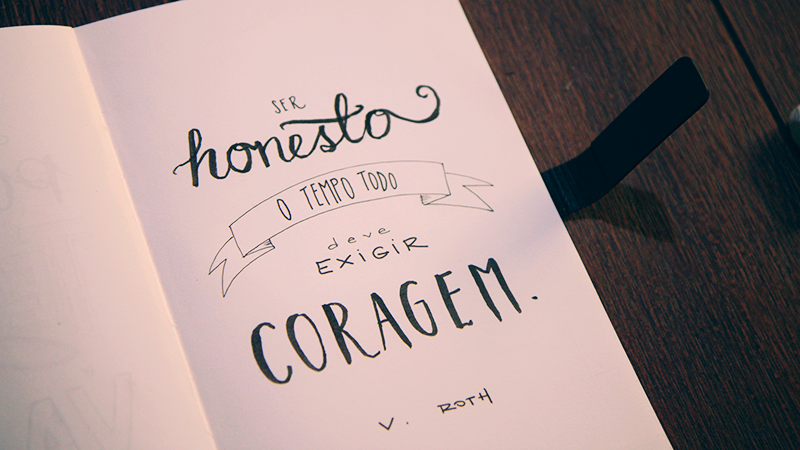 SER
honesto
O TEMPO TODO
deve
EXIGIR
CORAGEM.
V. ROTH